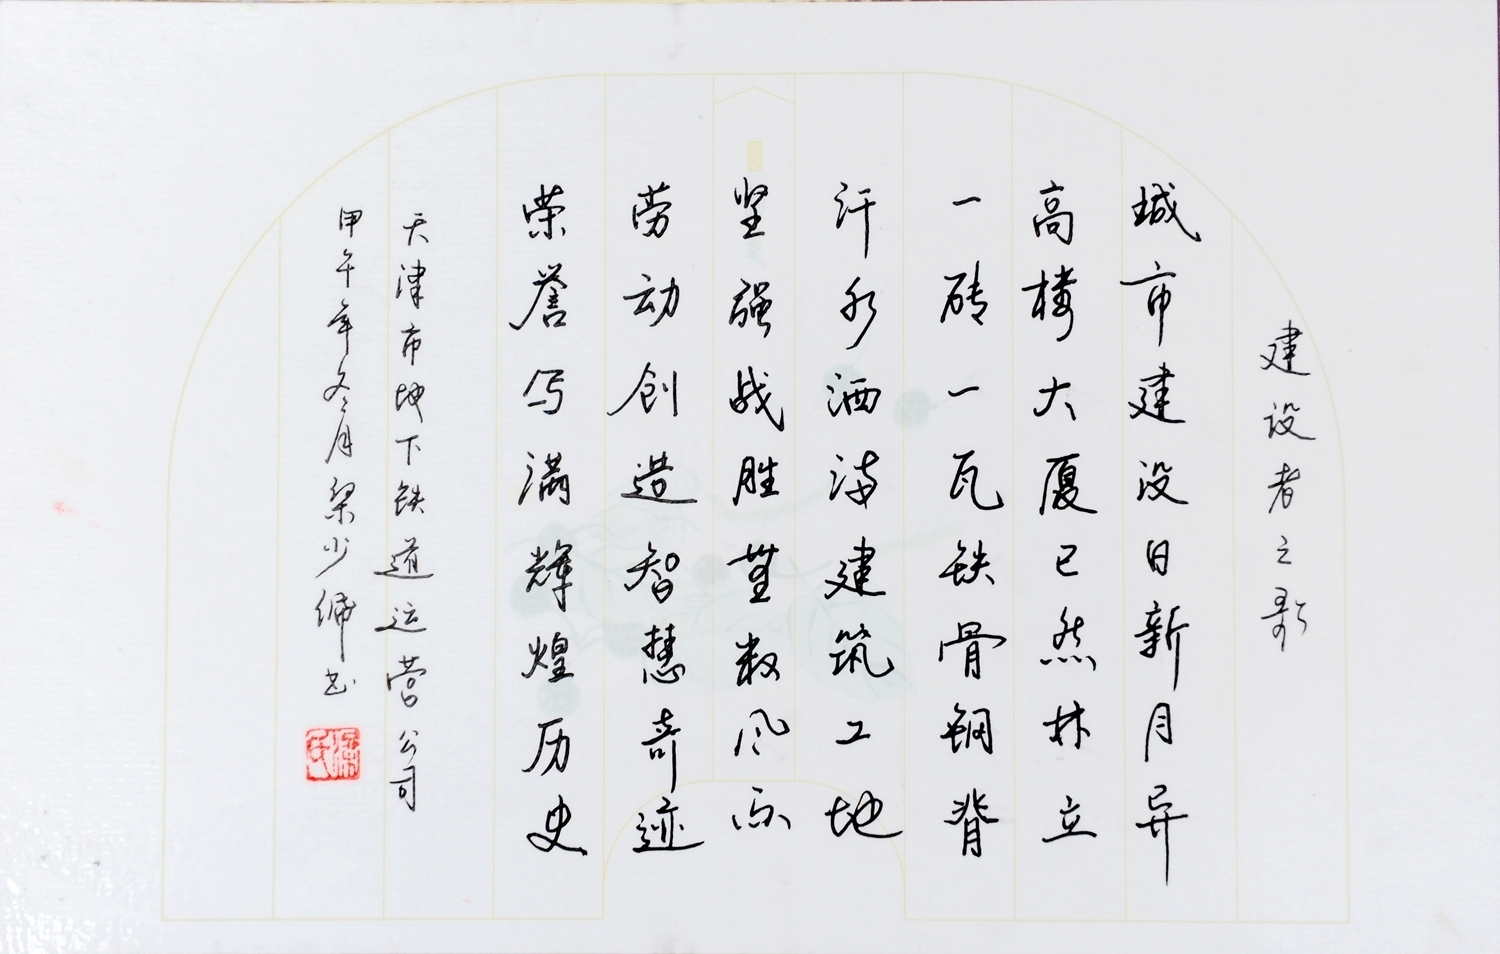 建设者之歌
城市建设日新月异
高楼大厦已然林立
一砖一瓦铁骨钢脊
汗水洒满建筑工地
坚强战胜無数风雨
劳动创造智慧奇迹
荣誉写满辉煌历史
天津市地下铁道运营公司
甲午年冬月梁少书
梁氏